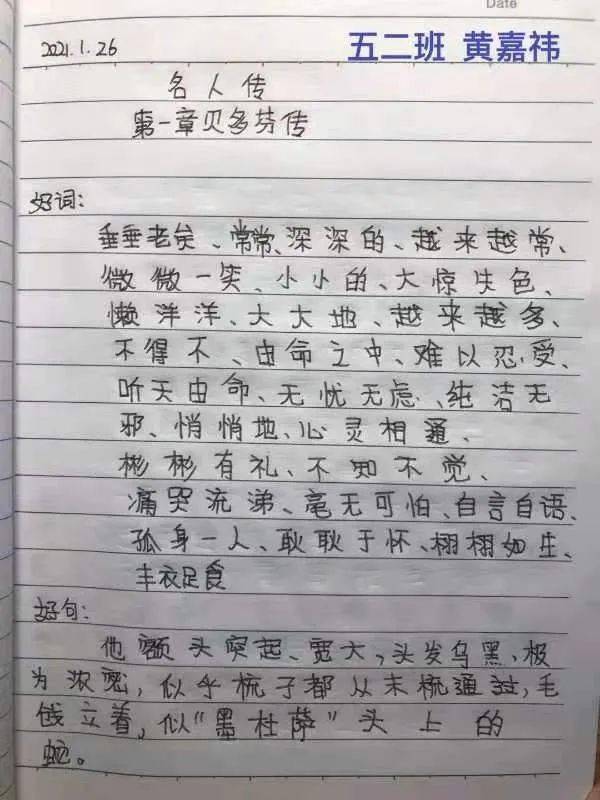 Date
2021.1.26 五二班 黄嘉祎
名人传
第一章贝多芬传
好词:
垂垂老矣、常常、深深的、越来越常、
微微一笑、小小的、大惊失色、
懒洋洋、大大地、越来越多、
不得不、由命之中、难以忍受、
听天由命、无忧无虑、纯洁无
邪、悄悄地、心灵相通、
彬彬有礼、不知不觉、
痛哭流涕、毫无可怕、自言自语、
孤身一人、耿耿于怀、栩栩如生、
丰衣足食
好句:
他额头突起、宽大,头发乌黑,极
为浓密,似乎梳子都从未梳通过,毛
戗立着,似“墨杜萨”头上的
蛇。